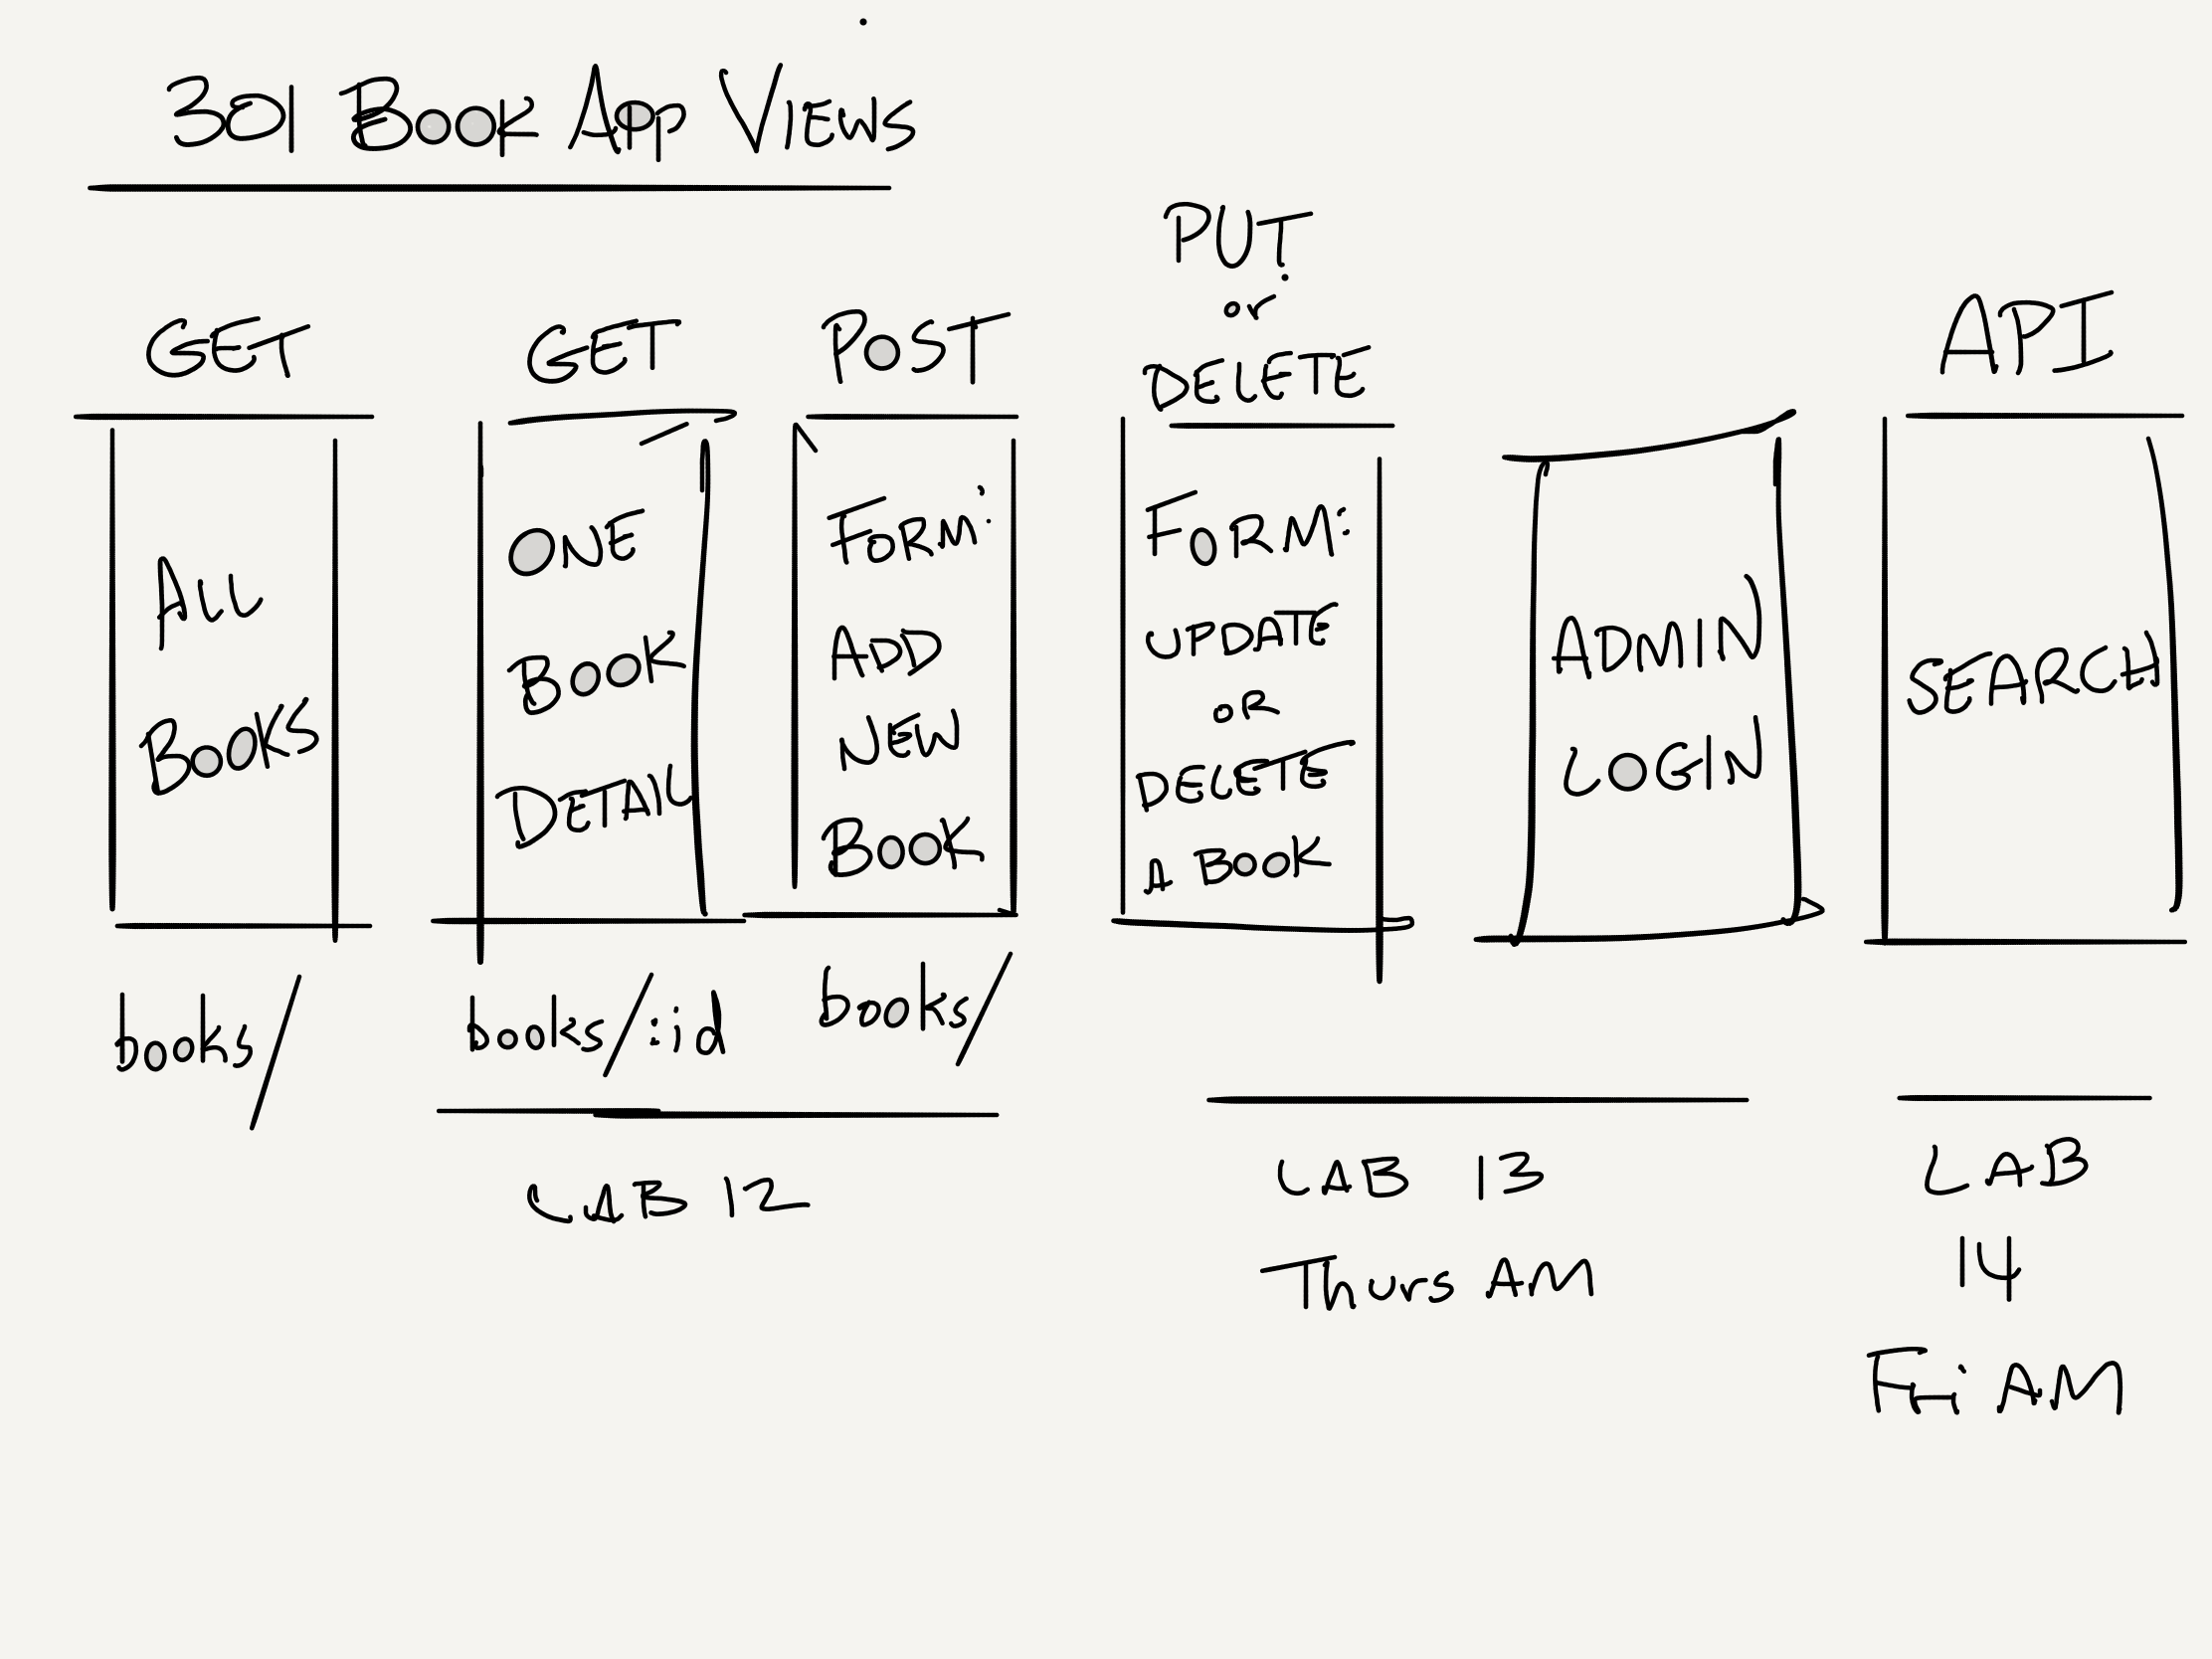 301 Book App Views
GET
All
Books
books/
GET
One
Book
Detail
books/:id
POST
Form:
Add
New
Book
books/
LAB 12
PUT
or
DELETE
Form:
UPDATE
OR
DELETE
A BOOK
ADMIN
LOGIN
LAB 13
Thurs AM
API
SEARCH
LAB
14
Fri AM